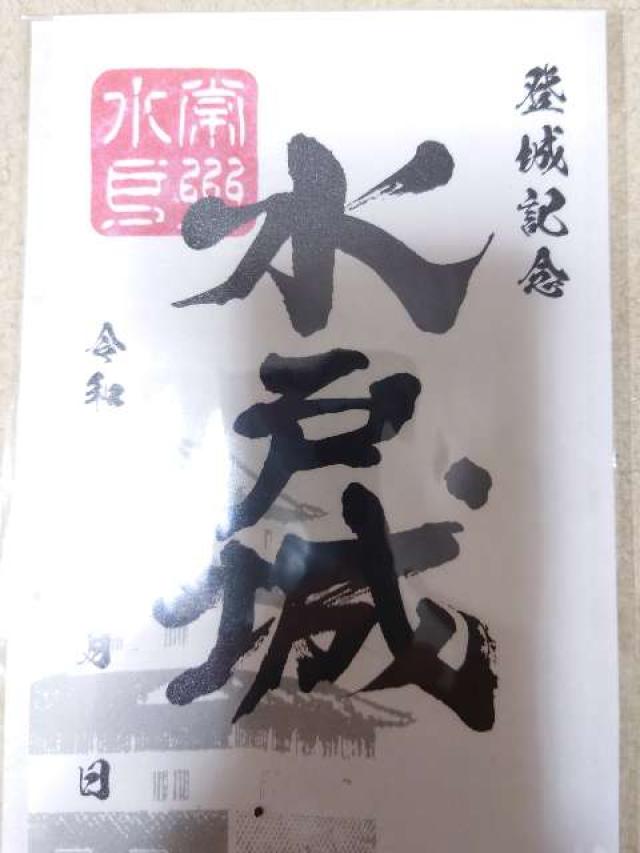 登城記念
水戸城
常州
水戸
令和
月
日